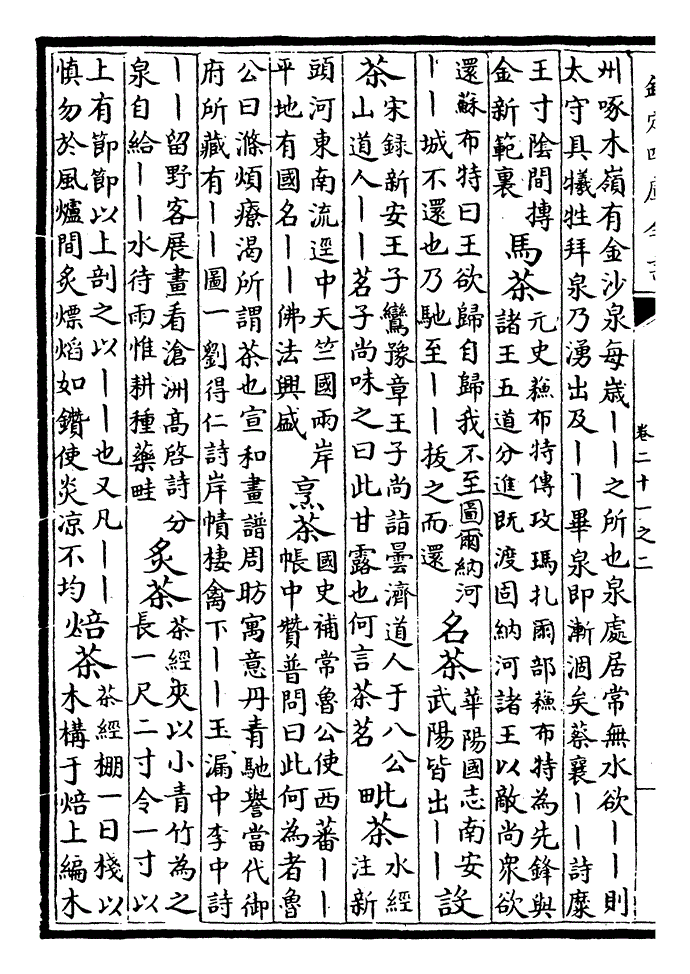 欽定四庫全書
卷二十一之二
州啄木嶺有金沙泉每歲丨丨之所也泉處居常無水欲丨丨則
太守具犧牲拜泉乃湧出及丨丨畢泉即漸涸矣蔡襄丨丨詩糜
王寸陰間摶
金新範裏
馬茶
元史蘓布特傳攻瑪扎爾部蘓布特為先鋒與
諸王五道分進既渡固納河諸王以敵尚衆欲
還蘇布特曰王欲歸自歸我不至圖爾納河
丨丨城不還也乃馳至丨丨拔之而還
名茶
華陽國志南安
武陽皆出丨丨
設
茶
宋録新安王子鸞豫章王子尚詣曇濟道人于八公
山道人丨丨茗子尚味之曰此甘露也何言茶茗
毗茶
水經
注新
頭河東南流逕中天竺國兩岸
平地有國名丨丨佛法興盛
烹茶
國史補常魯公使西蕃丨丨
帳中贊普問曰此何為者魯
公曰滌煩療渴所謂茶也宣和畫譜周昉寓意丹青馳譽當代御
府所藏有丨丨圖一劉得仁詩岸幘棲禽下丨丨玉漏中李中詩
丨丨留野客展畫看滄洲髙啓詩分
泉自給丨丨水待雨惟耕種藥畦
炙茶
茶經夾以小青竹為之
長一尺二寸令一寸以
上有節節以上剖之以丨丨也又凡丨丨
慎勿於風爐間炙熛焰如鑽使炎凉不均
焙茶
茶經棚一曰棧以
木構于焙上編木